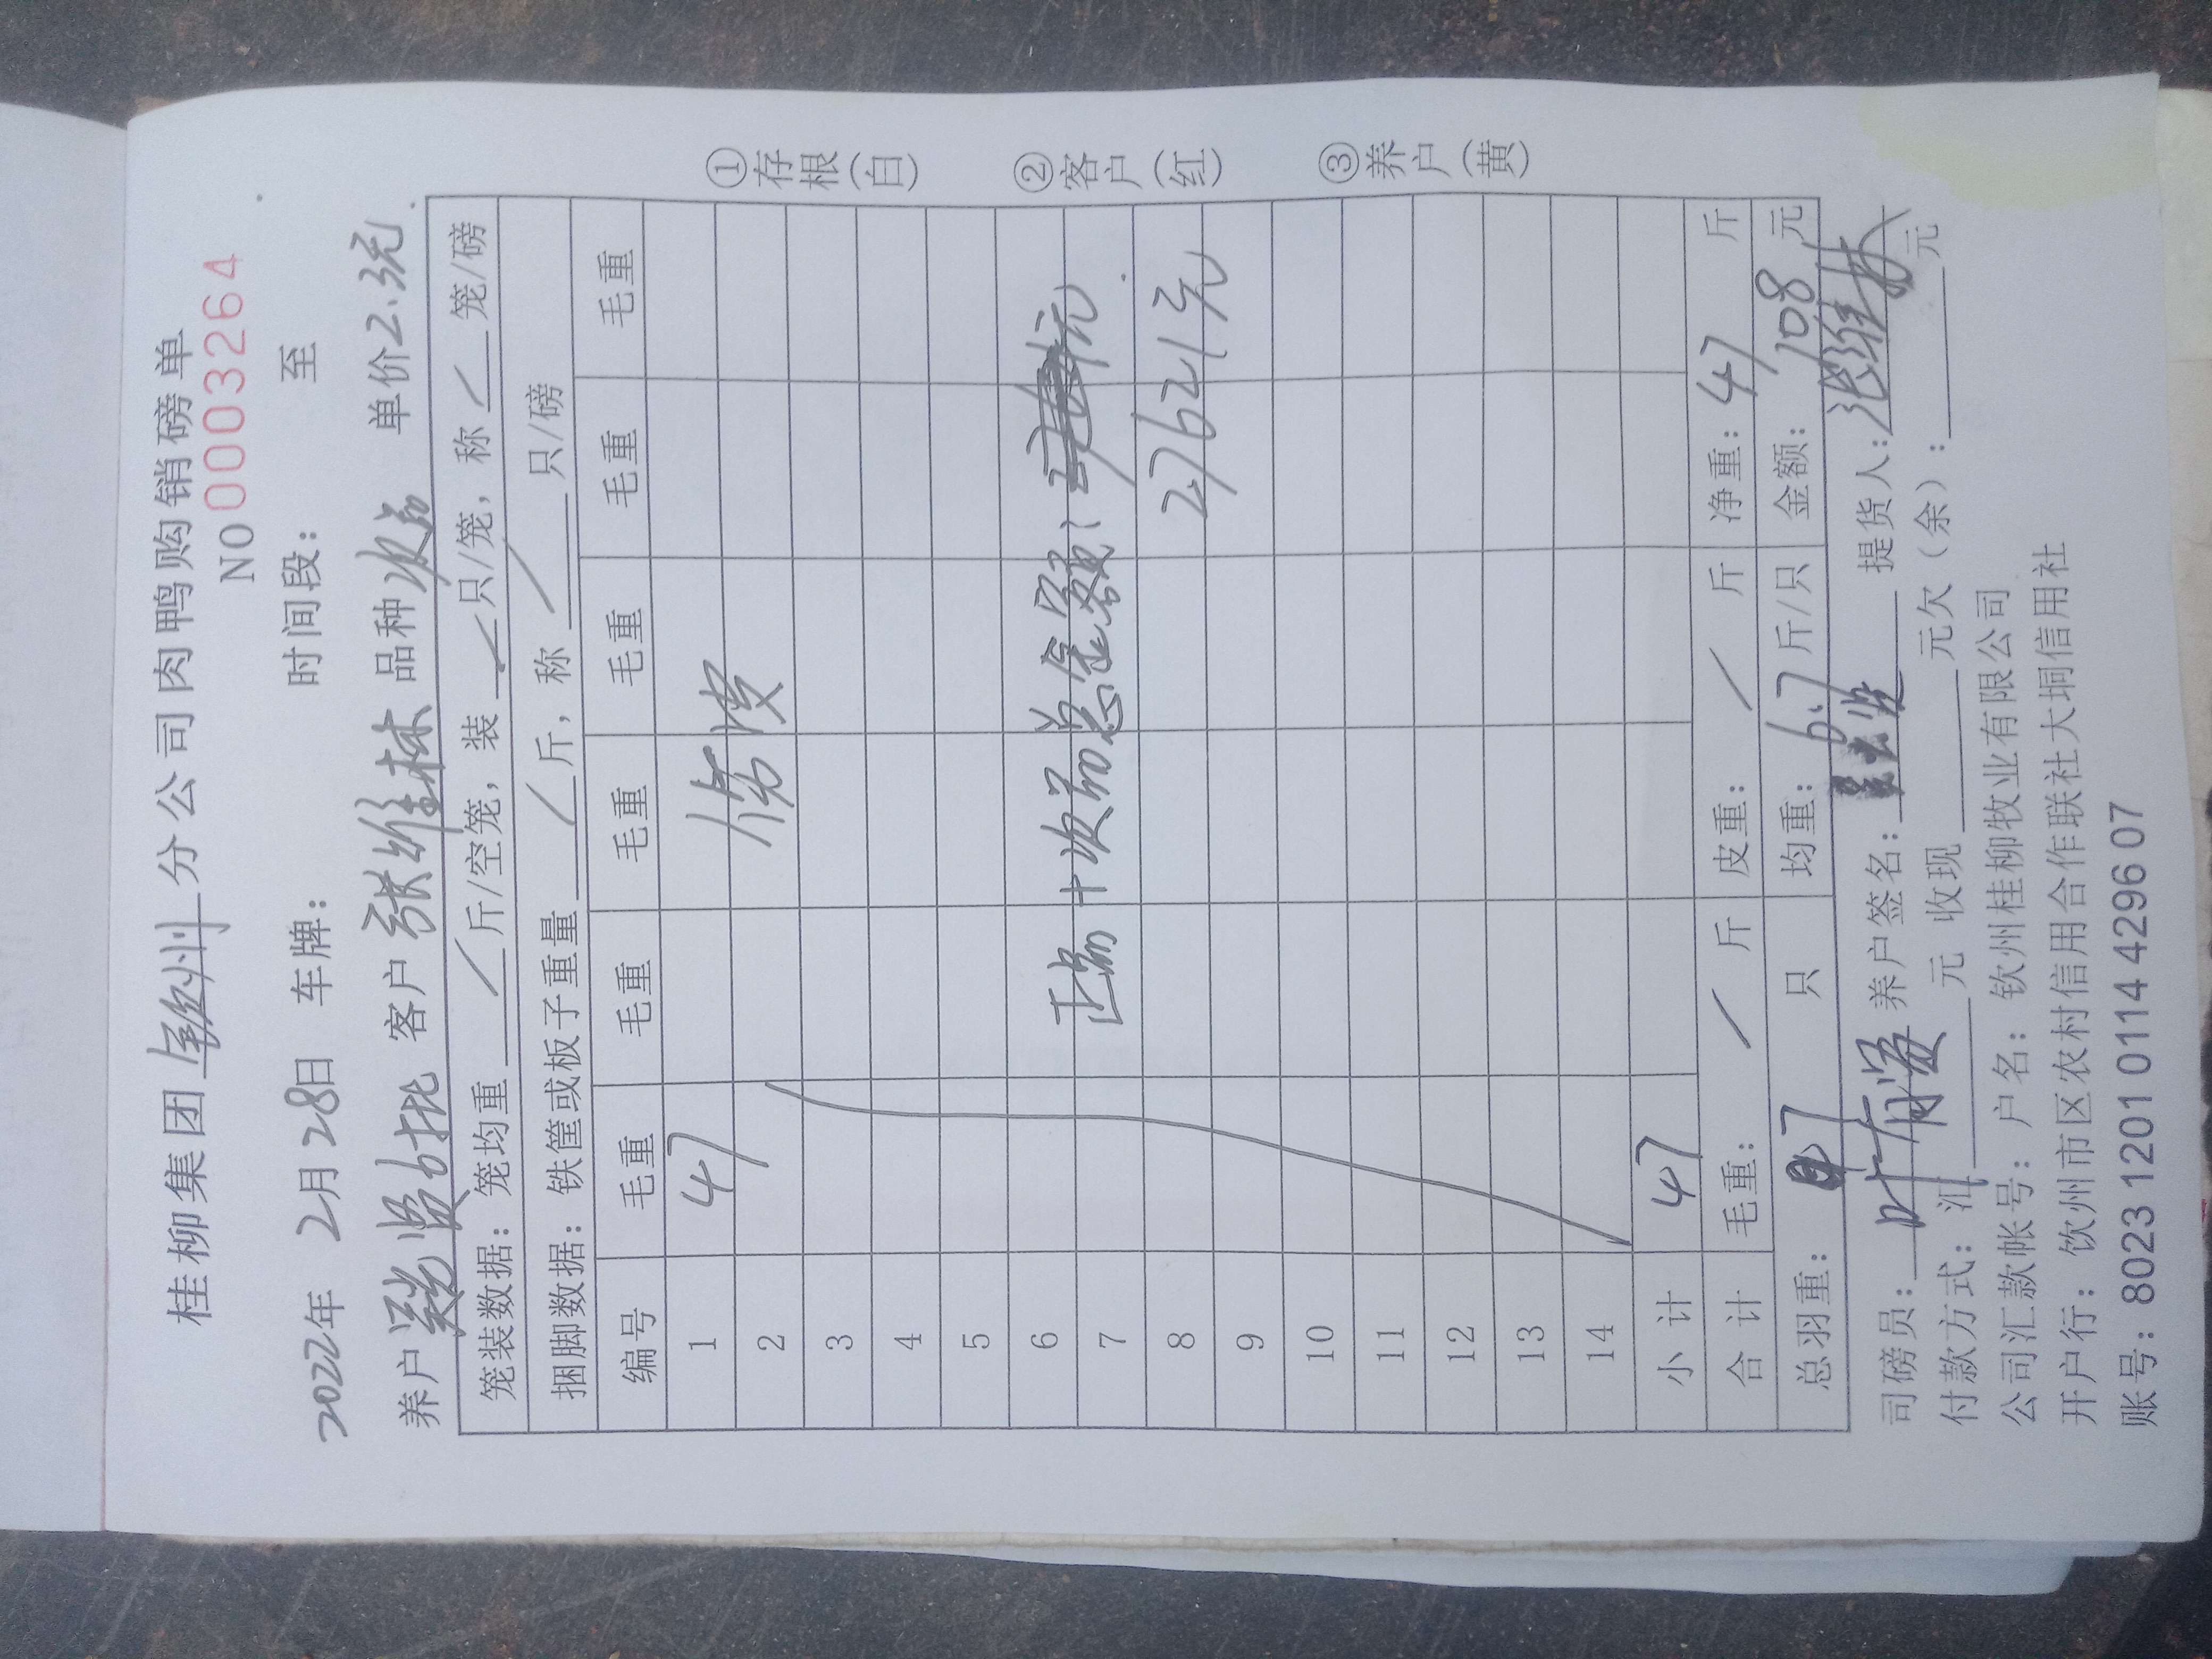 桂柳集团 钦州 分公司肉鸭购销磅单
NO 0003264
2022年 2月28日 车牌: 时间段: 至
养户 6批 客户 张维林 品种 次品 单价 2.3元
笼装数据: 笼均重 / 斤/空笼, 装 / 只/笼, 称 / 笼/磅
捆脚数据: 铁筐或板子重量 / 斤, 称 / 只/磅
编号 毛重 毛重 毛重 毛重 毛重 毛重
1 47 伤残
2
3
4
5
6
7 正品+次品总金额: 元
8 27621元
9
10
11
12
13
14
小计 47
合计 毛重: / 斤 皮重: / 斤 净重: 47 斤
总羽重: 7 只 均重: 6.7 斤/只 金额: 108 元
司磅员: 叶 养户签名: 提货人: 张维林
付款方式: 汇 元 收现 元欠(余): 元
公司汇款帐号: 户名: 钦州桂柳牧业有限公司
开户行: 饮州市区农村信用合作联社大垌信用社
账号: 8023 1201 0114 4296 07
①存根(白)
②客户(红)
③养户(黄)